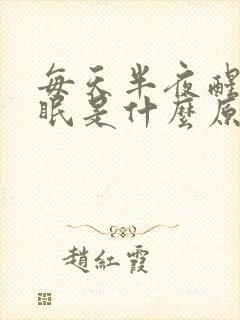 每天半夜醒
眠是什麼原
趙紅霞